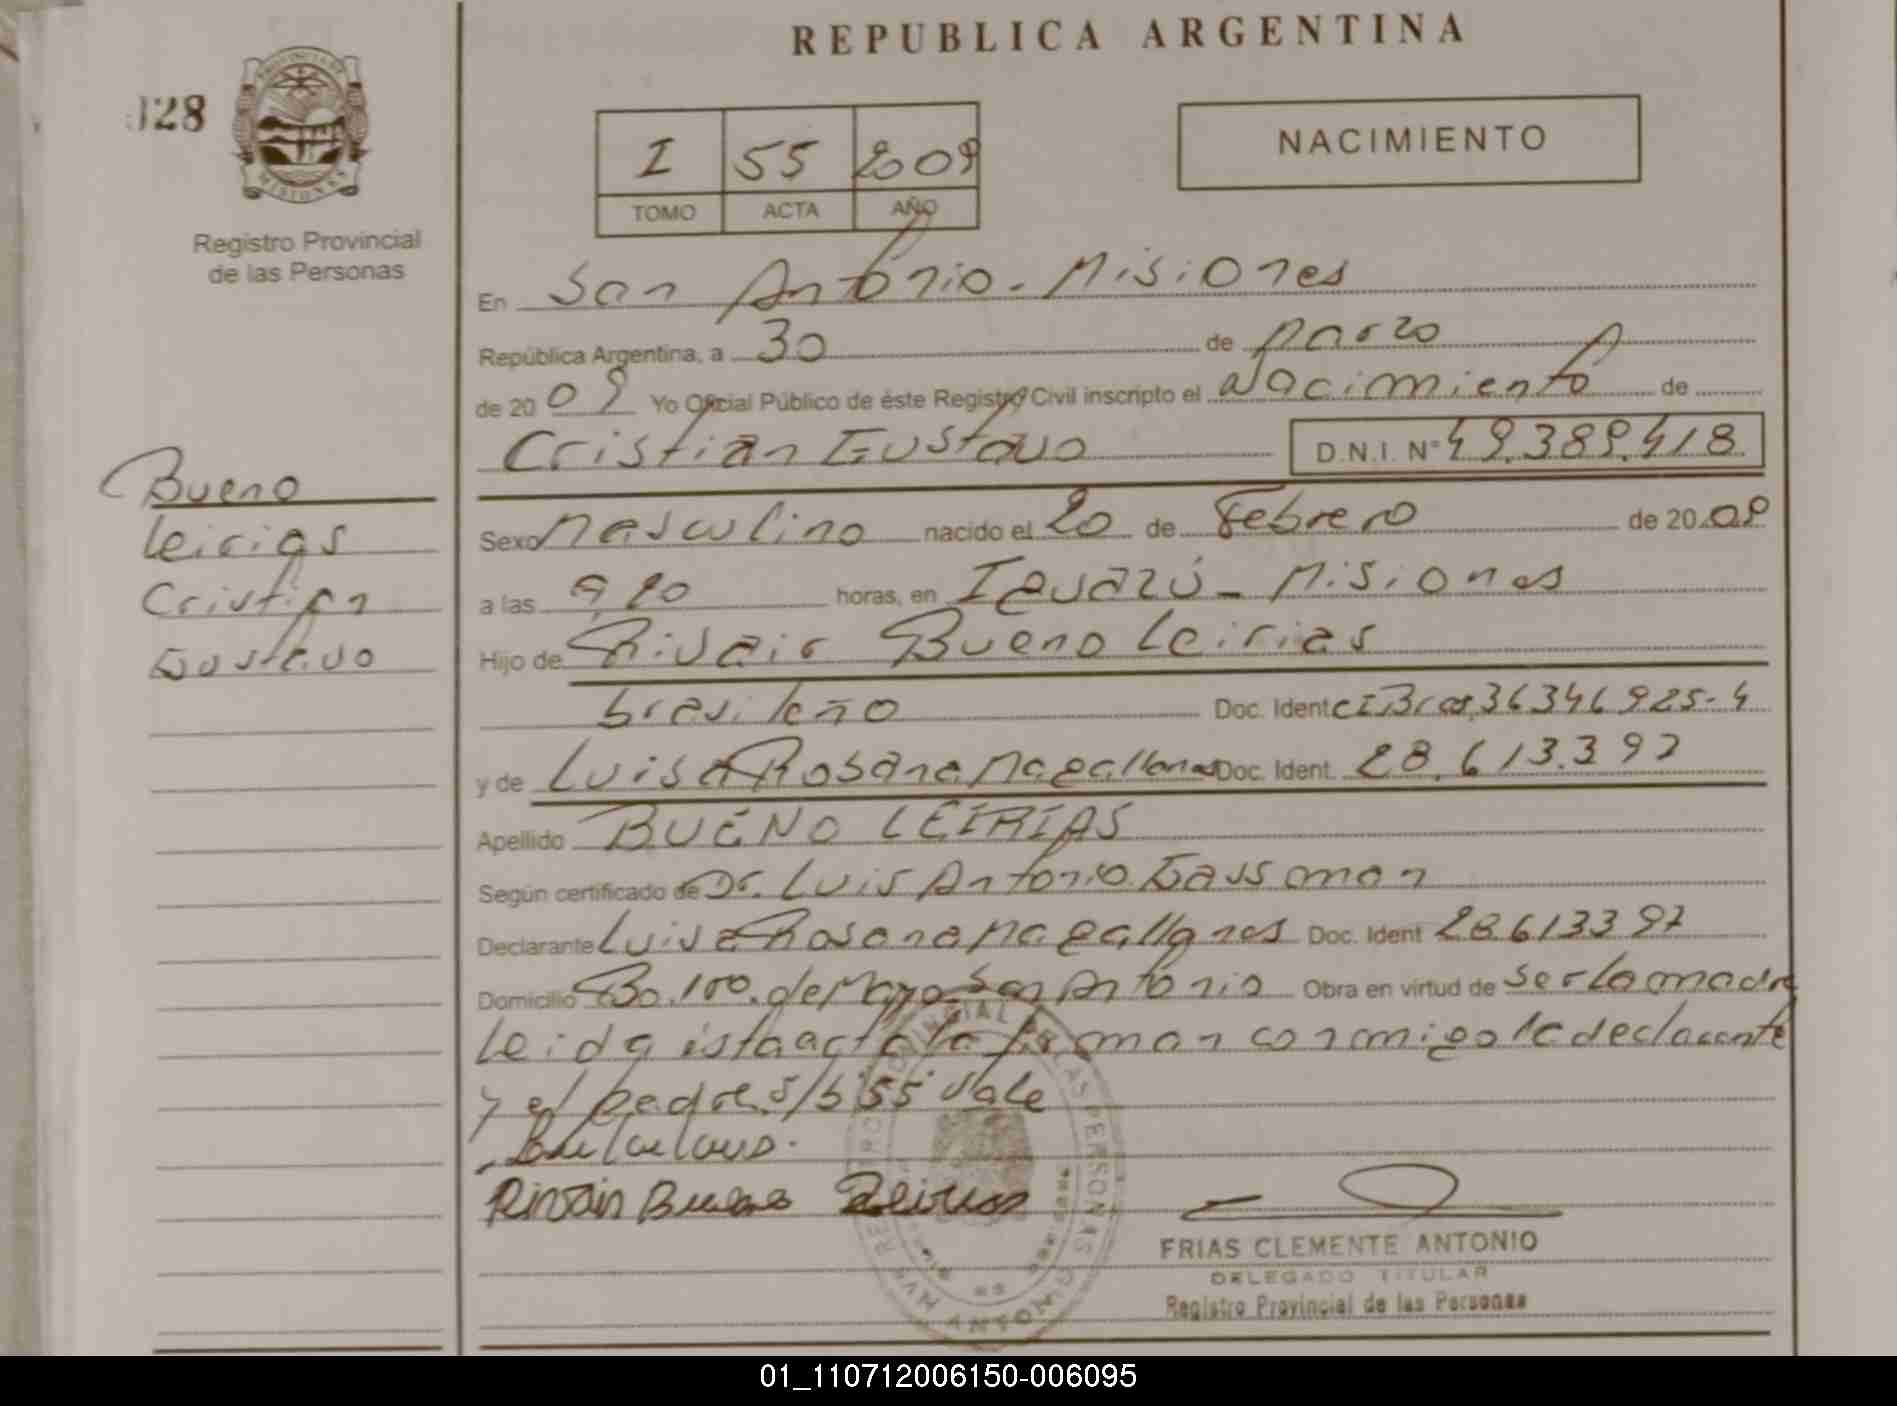 REPUBLICA ARGENTINA
128
PROVINCIA DE
MISIONES
Registro Provincial
de las Personas
I 55 2009
TOMO ACTA AÑO
NACIMIENTO
En San Antonio - Misiones
República Argentina, a 30 de Marzo
de 2009 Yo Oficial Público de éste Registro Civil inscripto el Nacimiento de
Cristian Gustavo D.N.I. Nº 49.389.418
Bueno
Leirias
Cristian
Gustavo
Sexo Masculino nacido el 20 de Febrero de 2009
a las 9,20 horas, en Iguazú - Misiones
Hijo de Rivair Bueno Leirias
brasileño Doc. Ident CI Bras 36346925-4
y de Luisa Rosana Magallanes Doc. Ident. 28.613.397
Apellido BUENO LEIRIAS
Según certificado de Dr. Luis Antonio Gassman
Declarante Luisa Rosana Magallanes Doc. Ident 28.613397
Domicilio Bo.100.de Mayo San Antonio Obra en virtud de Ser la madre
Leida esta acta la firman conmigo la declarante
y el padre s/b "55" Vale
Bueno
FRIAS CLEMENTE ANTONIO
DELEGADO TITULAR
Registro Provincial de las Personas
01_110712006150-006095